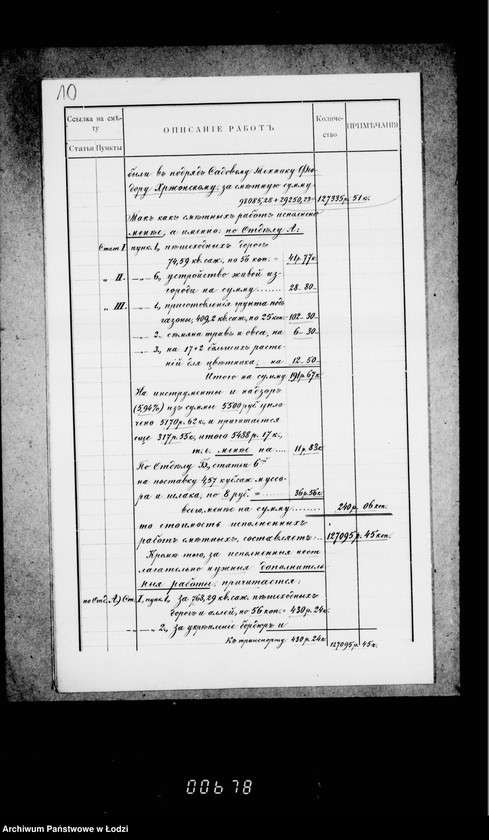 10
Ссылка на смѣту
ОПИСАНІЕ РАБОТЪ
Количество
ПРИМѢЧАНІЯ
Статьи Пункты
были въ подрядъ Садовому Технику Ѳео-
дору Яржонскому, за смѣтную сумму
98085,28 + 29250,23 = 127335 р. 51 к.
Такъ какъ смѣтныхъ работъ исполнено
менѣе, а именно: по Отдѣлу А:
Стат I. пунк. 1, пѣшеходныхъ дорогъ
74,59 кв. саж., по 56 коп. = 41 р. 77 к.
„ II. —„— 6, устройство живой из-
городи на сумму ....... 28 - 80 -
„ III. —„— 1, приготовленія грунта подъ
газоны, 409,2 кв. саж., по 25 коп. 102 - 30 -
—„— 2 - сѣмянъ травъ и овса, на 6 - 30 -
—„— 3, на 17+2 большихъ расте-
ній для цвѣтника, на 12 - 50 -
Итого на сумму 191 р. 67 к.
На инструменты и надзоръ
(5,94%) изъ суммы 5500 руб. упла-
чено 5170 р. 62 к., а причитается
еще 317 р. 55 к., итого 5488 р. 17 к.,
т. е. менѣе на .... 11 р. 83 к.
По Отдѣлу Б, статьи 6й
на поставку 4,57 куб. саж. мусо-
ра и шлака, по 8 руб. = ....... 36 р. 56 к.
всего менѣе на сумму ....... 240 р. 06 коп.
то стоимость исполненныхъ
работъ смѣтныхъ, составляетъ ... 127095 р. 45 коп.
Кромѣ того, за исполненныя неот-
лагательно нужныя дополнитель-
ныя работы, причитается:
по Отд. А) Ст. I, пунк. 1, за 768,29 кв. саж. пѣшеходныхъ
дорогъ и аллей, по 56 коп. = 430 р. 24 к.
—„— 2, за укрѣпленіе бордюръ и
Къ транспорту 430 р. 24 к. 127095 р. 45 к.
00678
Archiwum Państwowe w Łodzi